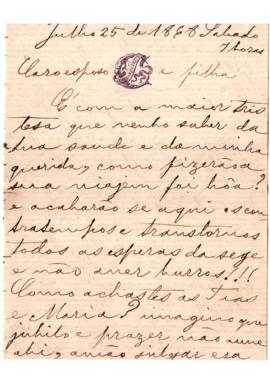 Julho 25 de 1868 Sabado
7 horas
Caro esposo e filha
É com a maior tris
tesa que venho saber da
tua saude e da minha
querida, como fizerão a
sua viajem foi bôa?
e acabarão se aqui os con
tratempos e transtornos
todos as esperas da sege
e não aver burros!!!
Como achastes as Tias
e Maria? imagino que
jubilo e prazer não
ahi, a não julgar era